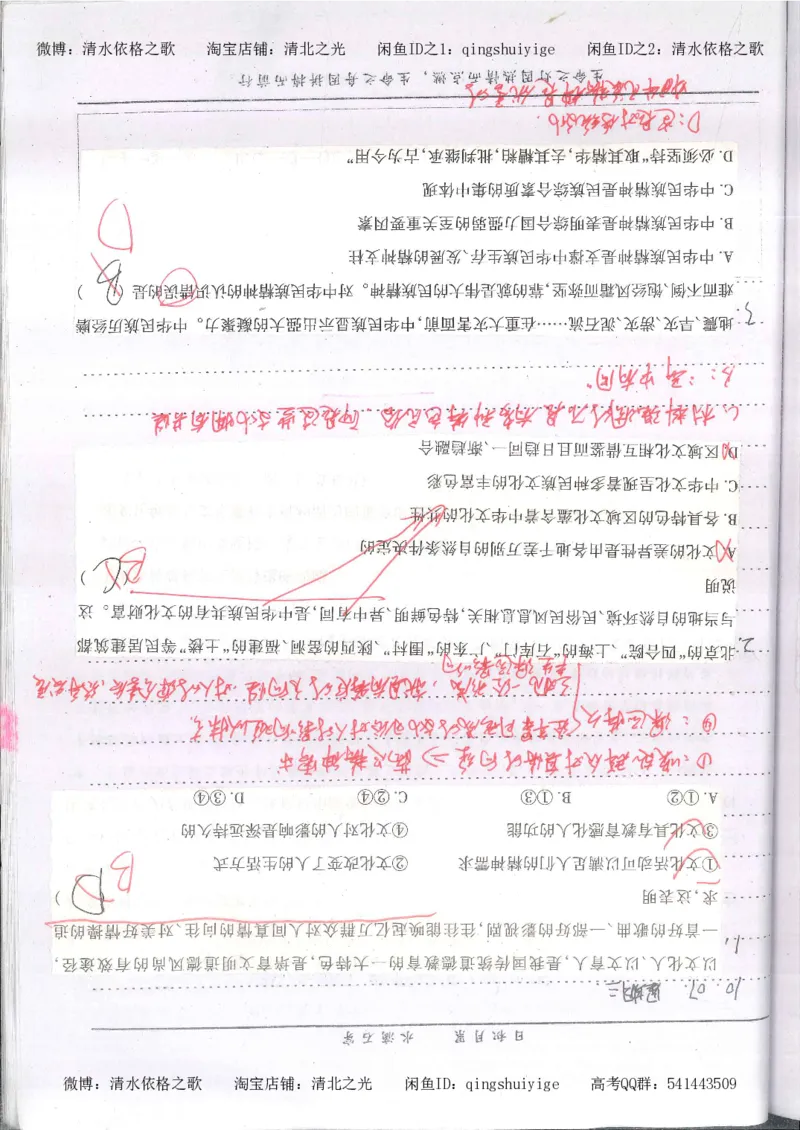 微博：清水依格之歌 淘宝店铺：清北之光 闲鱼ID之1：qingshuiyige 闲鱼ID之2：清水依格之歌
日积月累 水滴石穿
10.07. 星期二
1.
以文化人、以文育人，是我国传统道德教育的一大特色，是培育文明道德风尚的有效途径，
一首好的歌曲、一部好的影视剧，往往能唤起亿万群众对人间真情的向往、对美好情操的追
求，这表明
( )
D
B
①文化活动可以满足人们的精神需求 ②文化改变了人的生活方式
③文化具有教育感化人的功能 ④文化对人的影响是深远持久的
A.①② B.①③ C.②④ D.③④
①：唤起群众对真情的向往 ⇒ 满足精神需求
2.
北京的“四合院”、上海的“石库门”、广东的“围村”、陕西的窑洞、福建的“土楼”等民居建筑都
与当地的自然环境、民俗民风息息相关，特色鲜明、异中有同，是中华民族共有的文化财富。这
说明
( )
C
B
A.文化的差异性是由各地千差万别的自然条件决定的
B.各具特色的区域文化蕴含着中华文化的共性
C.中华文化呈现着多种民族文化的丰富色彩
D.区域文化相互借鉴而且日趋同一、渐趋融合
B：异中有同。
3.
地震、旱灾、涝灾、泥石流……在重大灾害面前，中华民族显示出强大的凝聚力。中华民族历经磨
难而不倒、饱经风霜而弥坚，靠的就是伟大的民族精神。对中华民族精神的认识错误的是 ( )
B
D
A.中华民族精神是支撑中华民族生存、发展的精神支柱
B.中华民族精神是表明综合国力强弱的至关重要因素
C.中华民族精神是民族综合素质的集中体现
D.必须坚持“取其精华，去其糟粕，批判继承，古为今用”
生命之灯因热情而点燃，生命之舟因拼搏而前行
微博：清水依格之歌 淘宝店铺：清北之光 闲鱼ID：qingshuiyige 高考QQ群：541443509